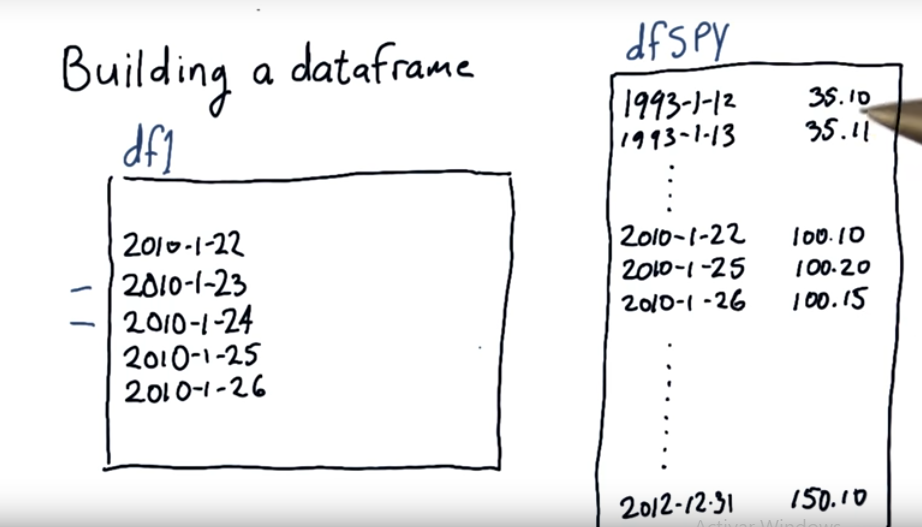 Building a dataframe
df1
2010-1-22
2010-1-23
2010-1-24
2010-1-25
2010-1-26
dfSPY
1993-1-12 35.10
1993-1-13 35.11
2010-1-22 100.10
2010-1-25 100.20
2010-1-26 100.15
2012-12-31 150.10